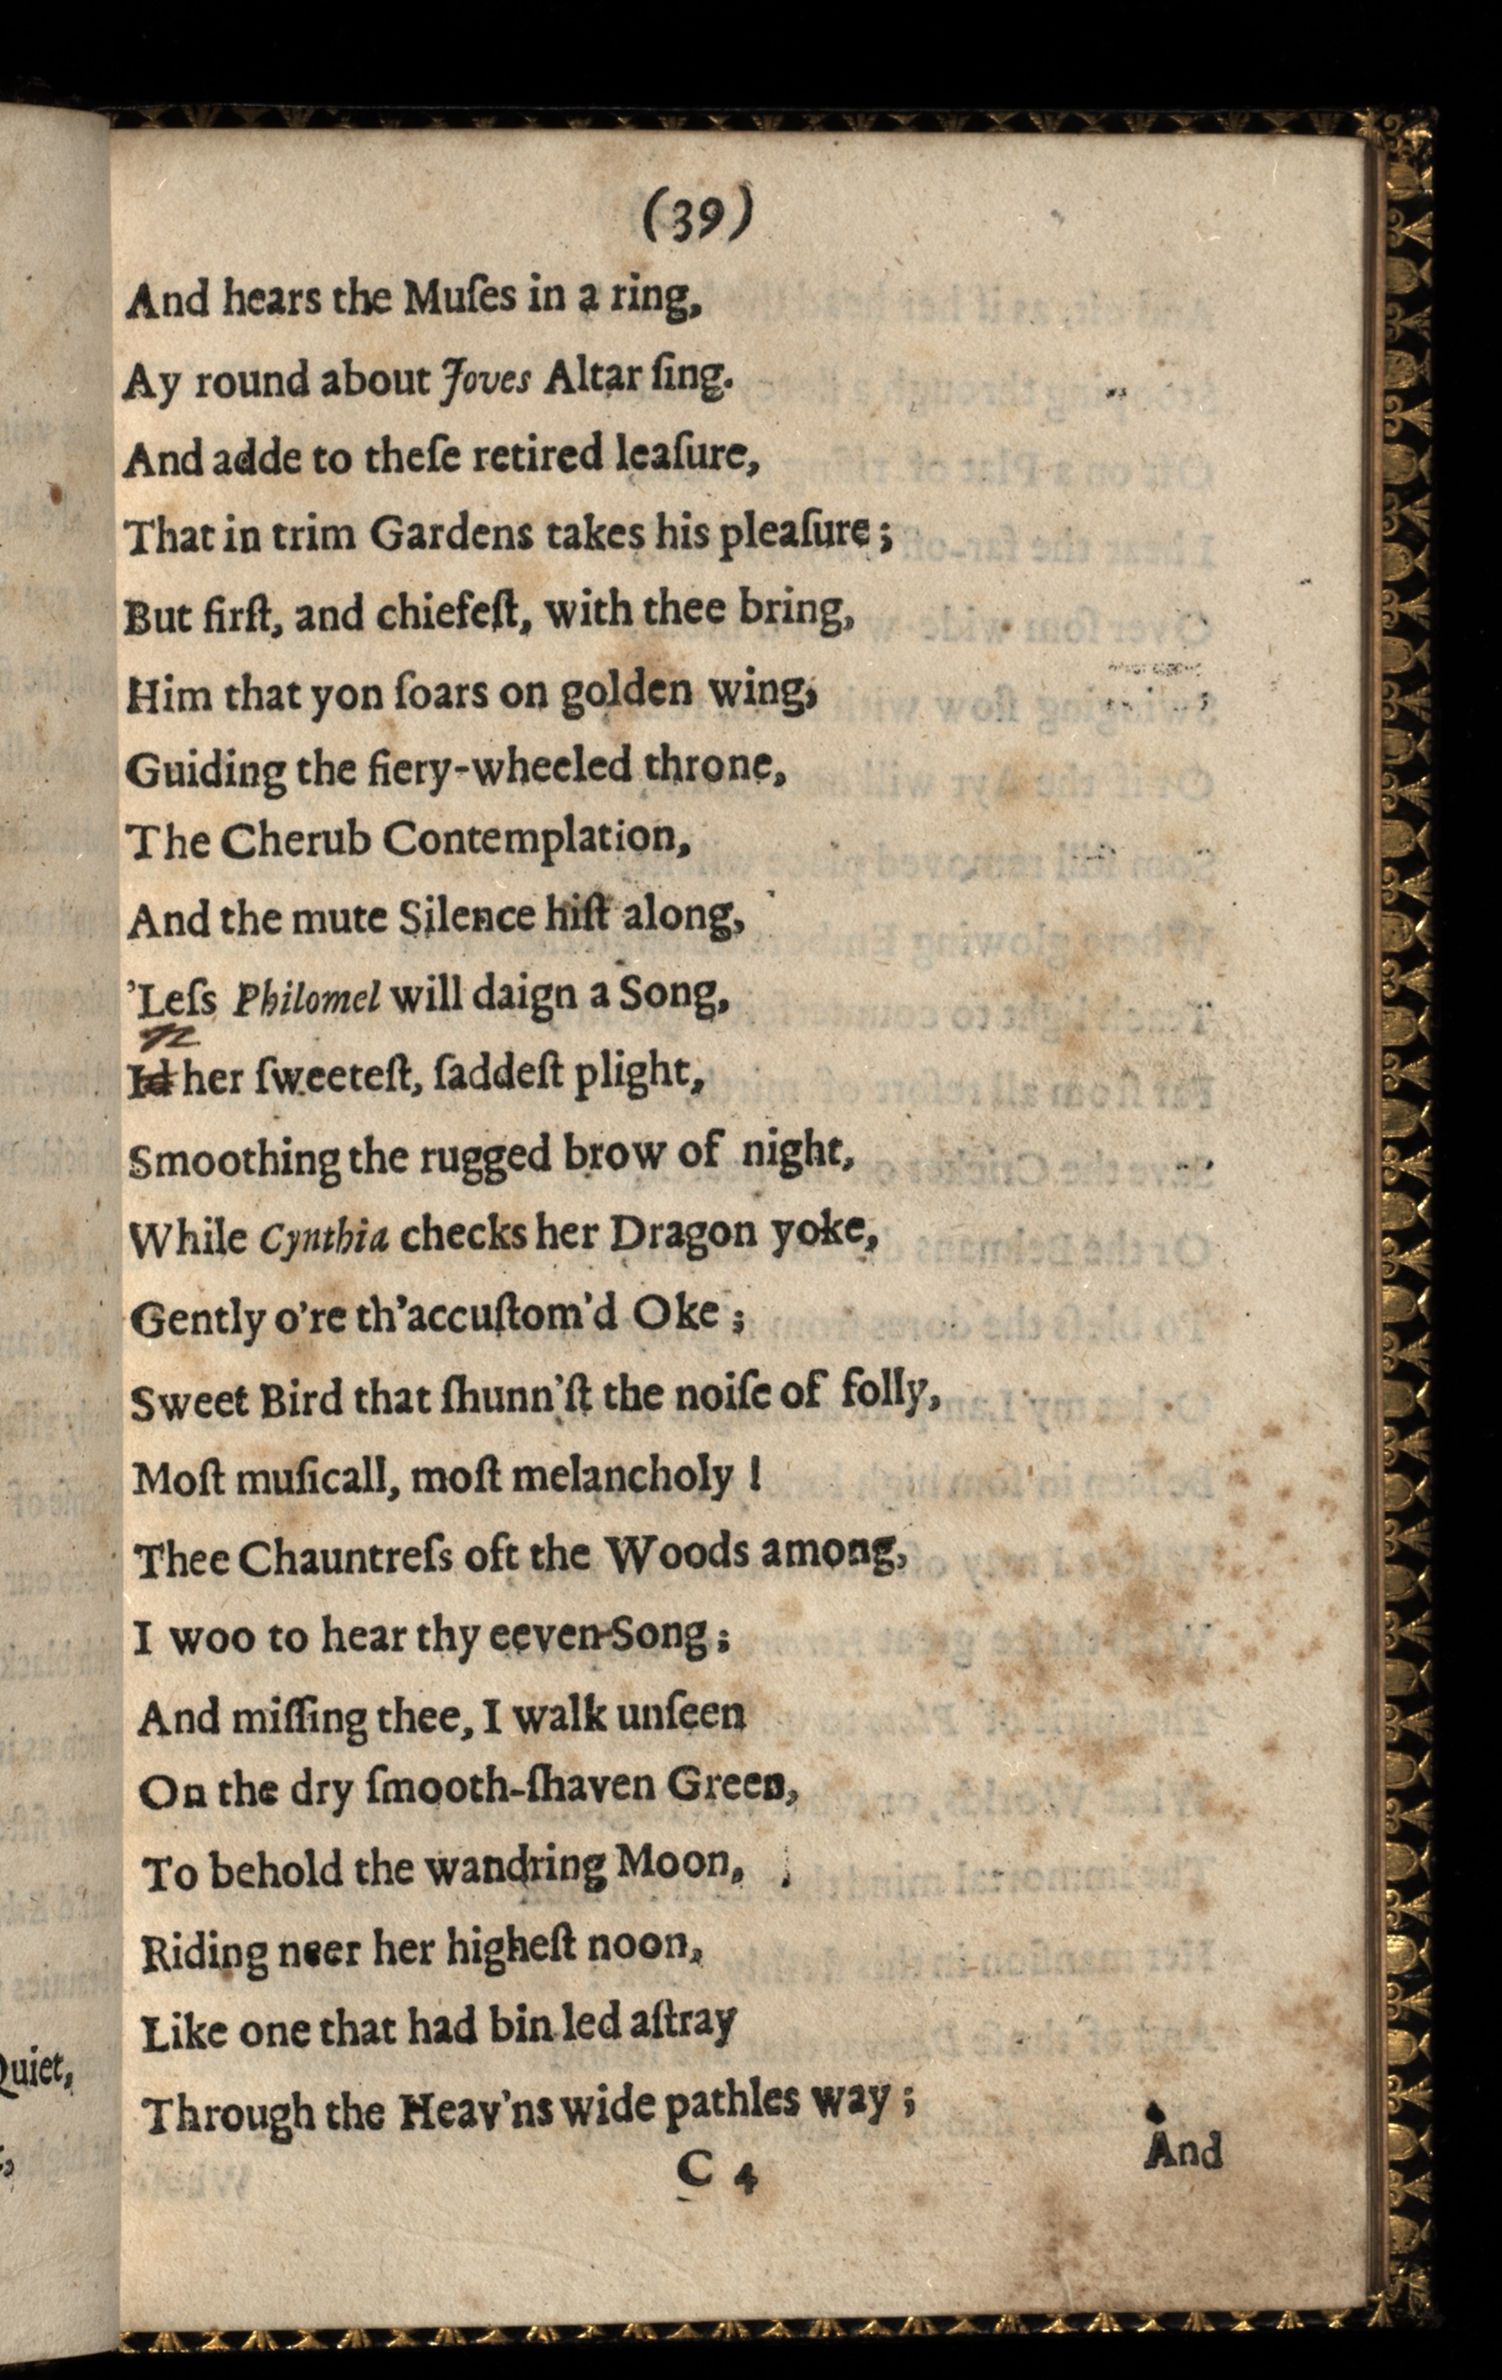 (39)
And hears the Muſes in a ring,
Ay round about Joves Altar ſing.
And adde to theſe retired leaſure,
That in trim Gardens takes his pleaſure;
But firſt, and chiefeſt, with thee bring,
Him that yon ſoars on golden wing,
Guiding the fiery-wheeled throne,
The Cherub Contemplation,
And the mute Silence hiſt along,
'Leſs Philomel will daign a Song,
n
Id her ſweeteſt, ſaddeſt plight,
Smoothing the rugged brow of night,
While Cynthia checks her Dragon yoke,
Gently o're th'accuſtom'd Oke;
Sweet Bird that ſhunn'ſt the noiſe of folly,
Moſt muſicall, moſt melancholy!
Thee Chauntreſs oft the Woods among,
I woo to hear thy eeven-Song;
And miſſing thee, I walk unſeen
On the dry ſmooth-ſhaven Green,
To behold the wandring Moon,
Riding neer her higheſt noon,
Like one that had bin led aſtray
Through the Heav'ns wide pathles way;
C 4
And
Quiet,